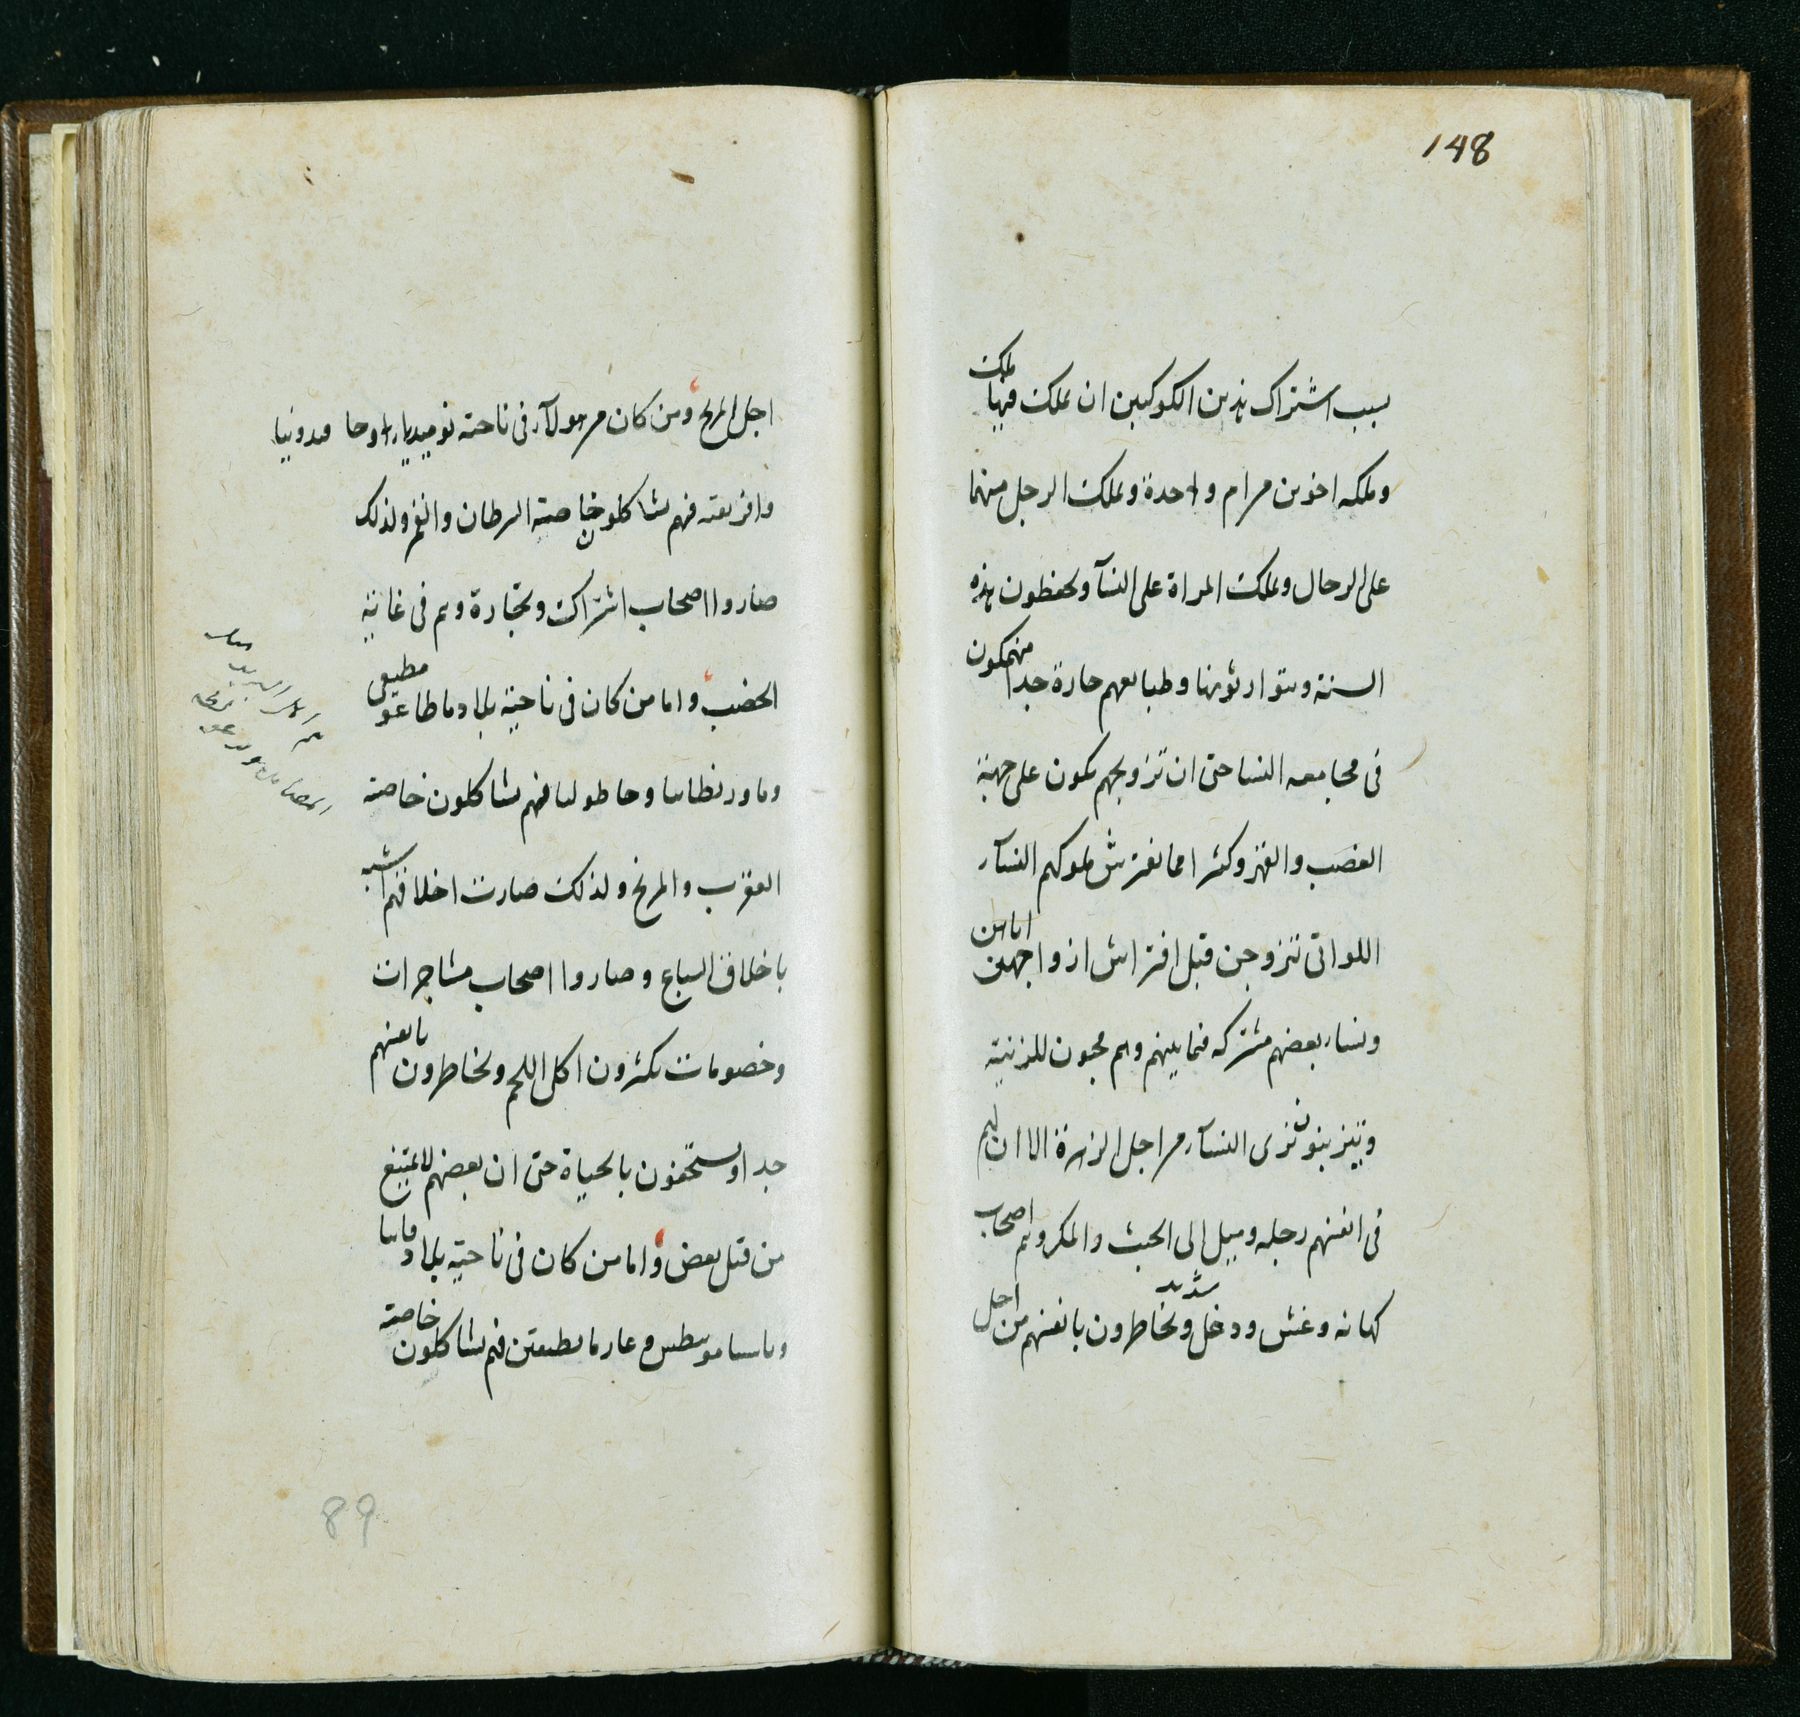 148
بسبب اشتراك هذين الكوكبين ان يملك فيها ملك
وملكه اخوين من ام واحدة ويملك الرجل منهما
على الرجال ويملك المراة على النسآ ويحفظون هذه
السنة ويتوارثونها وطبايعهم حارة جدا منهمكون
فى مجامعه النسا حتى ان تزويجهم يكون على جهة
الغصب والقهر وكثيرا مما يفترش ملوكهم النسآء
اللواتى تتزوجن قبل افتراش ازواجهن اياهن
ونساء بعضهم مشتركه فيما بينهم وهم محبون للزينة
ويتزينون بزى النسآء من اجل الزهرة الا ان لهم
فى انفسهم رجله وميل الى الخبث والمكر وهم اصحاب
كهانه وغش ودغل شديد ويخاطرون بانفسهم من اجل
اجل المريخ ومن كان من هولآء فى ناحية نوميديا وقا مدونيا
وافريقية فهم يشاكلون خاصية السرطان والقمر ولذلك
صاروا اصحاب اشتراك وتجارة وهم فى غاية
الخصب واما من كان فى ناحية بلاد ماطاغو مطيعى
وماورنطانيا وجاطوليا فهم يشاكلون خاصة
العقرب والمريخ ولذلك صارت اخلاقهم اشبه
باخلاق السباع وصاروا اصحاب مشاجرات
وخصومات يكثرون اكل اللحم ويخاطرون بانفسهم
جدا ويستخفون بالحياة حتى ان بعضهم لا يمتنع
من قتل بعض واما من كان فى ناحية بلاد
فهم يشاكلون خاصة
89